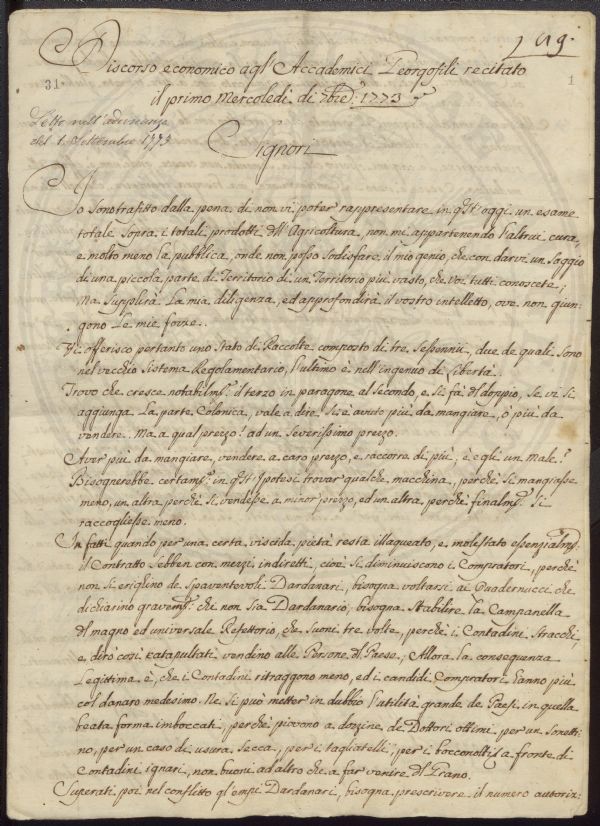 199.
Discorso economico agl'Accademici Georgofili recitato
31.
1
il primo Mercoledì di 7bre: 1773
Letto nell'adunanza
del 1. Settembre 1773
Signori
Io sono trafitto dalla pena di non vi poter rappresentare in qst'oggi un esame
totale sopra i totali prodotti dll'Agricoltura, non mi appartenendo l'altrui cura,
e molto meno la pubblica, onde non posso sodisfare il mio genio, che con darvi un saggio
di una piccola parte di Territorio di un Territorio più vasto, che voi tutti conoscete;
Ma supplirà la mia diligenza, ed approfondirà il vostro intelletto, ove non giun-
gono le mie forze.
Vi offerisco pertanto uno stato di Raccolte composto di tre Sessennii, due de quali sono
nel vecchio sistema Regolamentario, l'ultimo è nell'ingenuo di Libertà.
Trovo che cresce notabilmte. il terzo in paragone al secondo, e si fà dl doppio, se vi si
aggiunga la parte Colonica, vale a dire. Si è avuto più da mangiare, ò più da
vendere. Ma a qual prezzo! ad un severissimo prezzo.
Aver più da mangiare, vendere a caro prezzo, e raccorre di più, è egli un Male?
Bisognerebbe certamte. in qst'Ipotesi trovar qualche macchina, perchè si mangiasse
meno, un altra perchè si vendesse a minor prezzo, ed un altra, perchè finalmte. si
raccogliesse meno.
In fatti quando per una certa viscida pietà resta illaqueato, e molestato essenzialmte.
il Contratto sebben con mezzi indiretti, cioè si diminuiscono i Compratori, perchè
non si erighino de Spaventevoli Dardanari, bisogna voltarsi ai Quadernucci che
dichiarino gravemte. chi non sia Dardanario, bisogna stabilire la Campanella
dl magno ed universale Refettorio, che suoni tre volte, perchè i Contadini stracchi,
e dirò così catapultati vendino alle Persone dl Paese; Allora la conseguenza
legittima è, che i Contadini ritraggono meno, ed i candidi Compratori hanno più
col danaro medesimo. Ne si può metter in dubbio l'utilità grande de Paesi in quella
beata forma imboccati, perchè piovono a dozzine de Dottori ottimi per un sonetti-
no, per un caso di usura secca, per i tagliatelli, per i bocconotti a fronte di
Contadini ignari, non buoni ad altro che a far venire dl Grano.
Superati poi nel conflitto gl'empi Dardanari, bisogna prescrivere il numero autoriz=